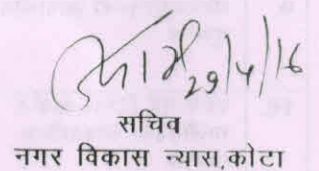 29/4/16
सचिव
नगर विकास न्यास,कोटा